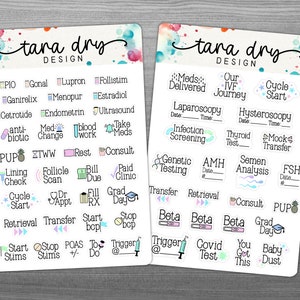 tara dry
DESIGN
PIO Gonal Lupron Follistim
Ganirelix Menopur Estradiol
Cetrotide Endometrin Ultrasound
anti-
biotic
Med
Change
Blood
work
Take
Meds
PUPO TWW Rest Consult
Lining
Check
Follicle
Scan
Fill
Bup
Day
Off
Cycle
Start
Dr
Appt
Fill
RX
Grad
Day
Retrieval Transfer Start
bcp
Stop
bcp
Start
Stims
Stop
Stims
POAS
+/-
To
Do
Trigger
@
tara dry
DESIGN
Meds
Delivered
Our
IVF
Journey
Cycle
Start
Laparoscopy
Date Time
Hysteroscopy
Date Time
Infection
Screening
Thyroid
Test
Mock
Transfer
Genetic
Testing
AMH
Date
Semen
Analysis
FSH
PUPO Consult
Transfer Retrieval
Beta Beta Grad
Day
Trigger
@
Covid
Test
You
Got
This
Baby
Dust